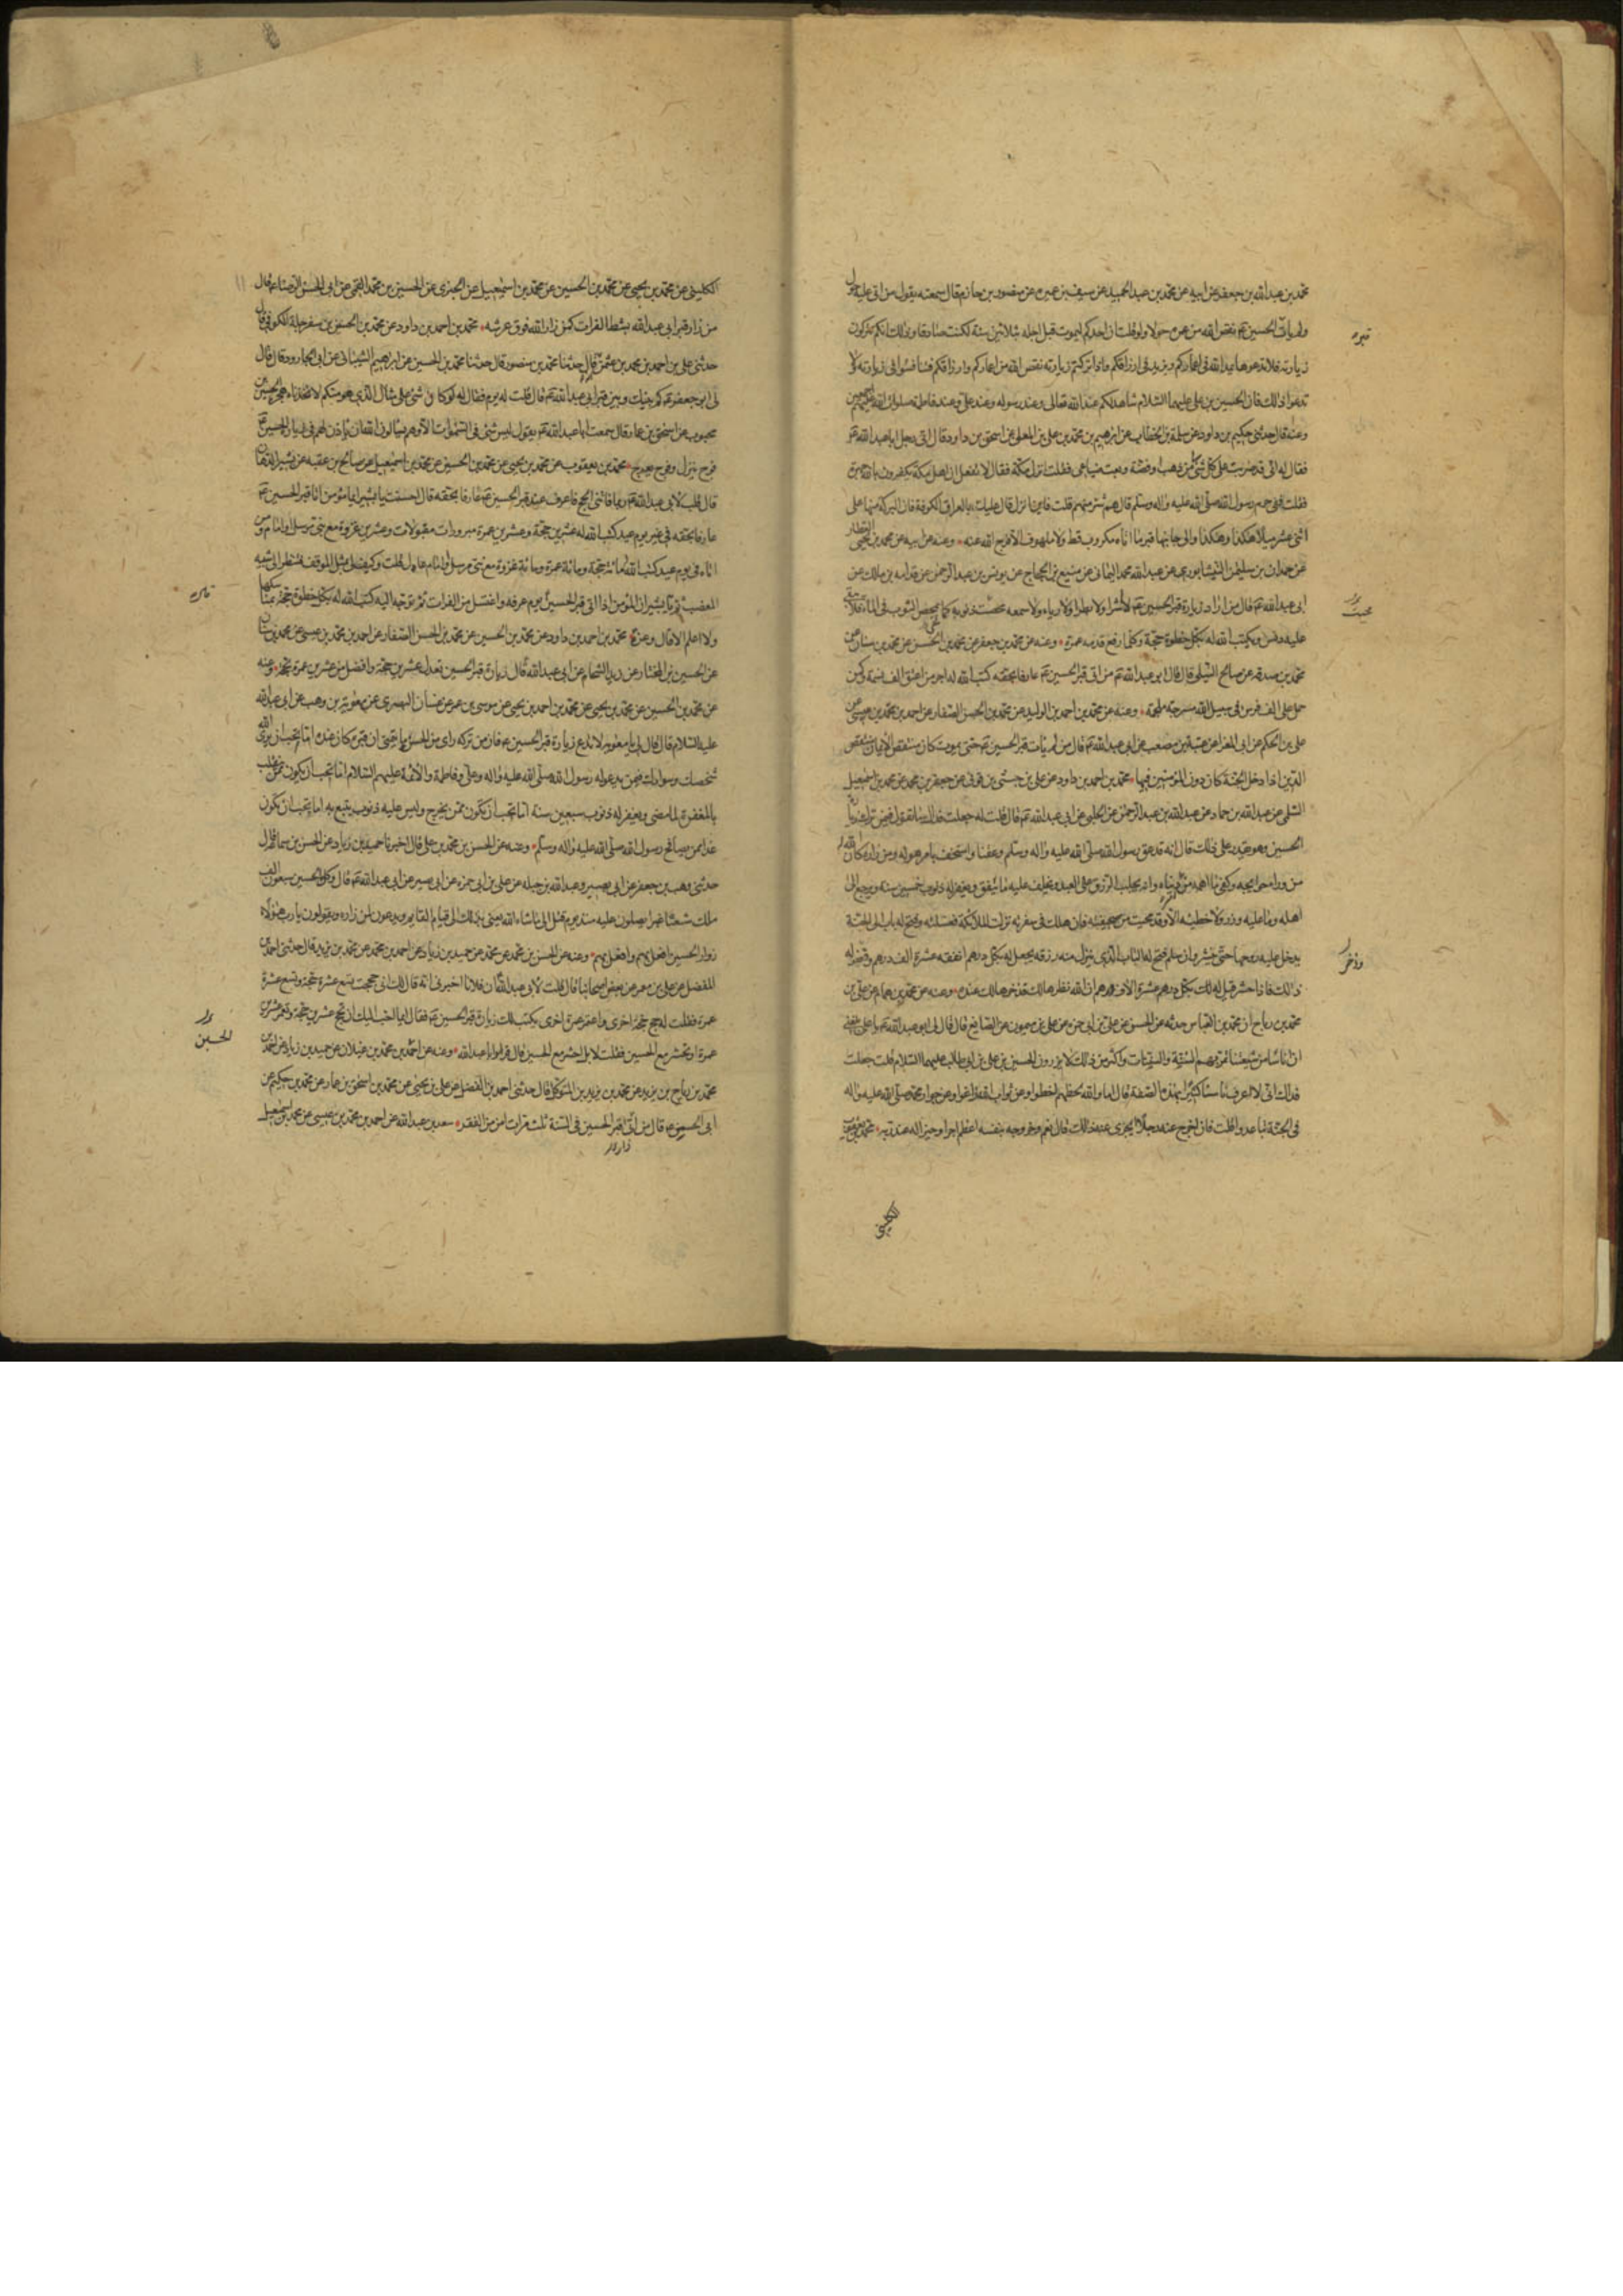 محمد بن عبدالله بن جعفر عن ابيه عن محمد بن عبد الحميد عن سيف بن عميره عن منصور بن حازم قال سمعته يقول من اتى عليه حول
ولم يأت الحسين عم نقص الله من عمره حولا ولو قلت ان احدكم ليموت قبل اجله بثلاثين سنة لكنت صادقا وذلك انكم تتركون
زيارته فلا تدعوها يمد الله في اعماركم ويزيد في ارزاقكم واذا تركتم زيارته نقص الله من اعماركم وارزاقكم فتنافسوا في زيارته ولا
تدعوا ذلك فان الحسين بن علي عليهما السلام شاهد لكم عند الله تعالى وعند رسوله وعند علي وعند فاطمة صلوات الله عليهم اجمعين
وعنه قال حدثني حكيم بن داود عن سلمة بن الخطاب عن ابرهيم بن محمد بن علي بن المعلى عن اسحق بن داود قال اتى رجل ابا عبدالله عم
فقال له اني قد ضربت على كل شئ لي من ذهب وفضة وبعت ضياعي فقلت انزل مكة فقال لا تفعل ان اهل مكة يكفرون بالله جهرة
فقلت ففي حرم رسول الله صلى الله عليه واله وسلم قال هم شر منهم قلت فاين انزل قال عليك بالعراق الكوفة فان البركة منها على
اثنى عشر ميلا هكذا وهكذا والى جانبها قبر ما اتاه مكروب قط ولا ملهوف الا فرج الله عنه وعنه عن ابيه عن محمد بن يحيى العطار
عن حمدان بن سليمن النيشابوري عن عبدالله محمد اليماني عن منيع بن الحجاج عن يونس بن عبد الرحمن عن قدامه بن مالك عن
ابي عبدالله عم قال من اراد زيارة قبر الحسين عم لا اشرا ولا بطرا ولا رياء ولا سمعه محصت ذنوبه كما يمحص الثوب في الماء فلا يبقى
عليه دنس ويكتب الله له بكل خطوة حجة وكلما رفع قدمه عمرة وعنه عن محمد بن جعفر عن محمد بن الحسين عن محمد بن سنان عن
محمد بن صدقه عن صالح النيلي قال قال ابو عبدالله عم من اتى قبر الحسين عم عارفا بحقه كتب الله له اجر من اعتق الف نسمة وكمن
حمل على الف فرس في سبيل الله مسرجة ملجمة وعنه عن محمد بن احمد بن الوليد عن محمد بن الحسن الصفار عن احمد بن محمد بن عيسى عن
علي بن الحكم عن ابي المغرا عن عتبة بن مصعب عن ابي عبدالله عم قال من لم يأت قبر الحسين عم حتى يموت كان منتقص الايمان منتقص
الدين اذا دخل الجنة كان دون المؤمنين فيها محمد بن احمد بن داود عن علي بن حبشي بن قوني عن جعفر بن محمد عن محمد بن اسمعيل
السلمى عن عبدالله بن حماد عن عبدالله بن عبد الرحمن عن الحلبي عن ابي عبدالله عم قال قلت له جعلت فداك ما تقول فيمن ترك زيارة
الحسين وهو يقدر على ذلك قال انه قد عق رسول الله صلى الله عليه واله وسلم وعقنا واستخف بامر هو له ومن زاره كان الله له
من وراء حوايجه وكفى ما اهمه من امر دنياه وانه يجلب الرزق على العبد ويخلف عليه ما ينفق ويغفر له ذنوب خمسين سنه ويرجع الى
اهله وما عليه وزر ولا خطيئه الا وقد محيت من صحيفته فان هلك في سفرته نزلت الملائكة فغسلته وفتح له باب الى الجنة
يدخل عليه روحها حتى ينشر وان سلم فتح له الباب الذي ينزل منه رزقه يجعل له بكل درهم انفقه عشرة الف درهم وذخر له
ذلك فاذا حشر قيل له لك بكل درهم عشرة الاف درهم ان الله نظر لك فذخرها لك عنده وعنه عن محمد بن همام عن علي بن
محمد بن رباح ان محمد بن العباس حدثه عن الحسن عن علي بن ابي حمزه عن علي بن ميمون عن الصايغ قال قال لي ابو عبدالله عم يا علي بلغني
ان ناسا من شيعتنا تمر بهم السنة والسنتان واكثر من ذلك لا يزورون الحسين بن علي بن ابي طالب عليهما السلام قلت جعلت
فداك اني لا اعرف ناسا كثيرا بهذه الصفة قال اما والله بحظهم اخطوا وعن ثواب الله زاغوا وعن جوار محمد صلى الله عليه واله
في الجنة تباعدوا قلت فان اخرج عنه رجلا ايجزي عنه ذلك قال نعم وخروجه بنفسه اعظم اجرا وخيرا له عند ربه محمد بن يعقوب
قبره
محيت
وذخر
الكليني
الكليني عن محمد بن يحيى عن محمد بن الحسين عن محمد بن اسمعيل عن الخيبري عن الحسين بن محمد القمي عن ابي الحسن الرضا عم قال
من زار قبر ابي عبدالله بشط الفرات كمن زار الله فوق عرشه محمد بن احمد بن داود عن محمد بن الحسن بن سفرجلة الكوفي قال
حدثني علي بن احمد بن محمد بن عمرن قال حدثنا محمد بن منصور قال حدثنا محمد بن الحسين عن ابرهيم الشيباني عن ابي الجارود قال قال
لي ابو جعفر عم كم بينك وبين قبر ابي عبدالله عم قال قلت له يوم فقال له لو كان شئ على مثال الذي هو منكم لاتخذناه هجرة الحسن بن
محبوب عن اسحق بن عمار قال سمعت ابا عبدالله عم يقول ليس شئ في السموات الا وهم يسألون الله ان يأذن لهم في زيارة الحسين عم
فوج ينزل وفوج يعرج محمد بن يعقوب عن محمد بن يحيى عن محمد بن الحسين عن محمد بن اسمعيل عن صالح بن عقبه عن بشير الدهان
قال قلت لابي عبدالله عم ربما فاتني الحج فاعرف عند قبر الحسين عم عارفا بحقه قال احسنت يا بشير ايما مؤمن اتا قبر الحسين عم
عارفا بحقه في غير يوم عيد كتب الله له عشرين حجة وعشرين عمرة مبرورات مقبولات وعشرين غزوة مع نبي مرسل او امام ومن
اتاه في يوم عيد كتب الله له مائة حجة ومائة عمرة ومائة غزوة مع نبي مرسل او امام عادل قلت وكيف لي بمثل الموقف فنظر الي شبه
المغضب ثم قال يا بشير ان المؤمن اذا اتى قبر الحسين يوم عرفه واغتسل من الفرات ثم توجه اليه كتب الله له بكل خطوة حجة بمناسكها
ولا اعلم الا قال وعمرة محمد بن احمد بن داود عن محمد بن الحسين عن محمد بن الحسن الصفار عن احمد بن محمد بن عيسى عن محمد بن سنان
عن الحسين بن المختار عن زيد الشحام عن ابي عبدالله قال زيارة قبر الحسين تعدل عشرين حجة وافضل من عشرين عمرة وحجة وعنه
عن محمد بن الحسين عن محمد بن يحيى عن محمد بن احمد بن يحيى عن موسى بن عمر عن غسان البصري عن معوية بن وهب عن ابي عبدالله
عليه السلام قال قال لي يا معوية لا تدع زيارة قبر الحسين عم فان من تركه راى من الحسرة ما يتمنى ان قبره كان عنده اما تحب ان يرى الله
شخصك وسوادك فيمن يدعو له رسول الله صلى الله عليه واله وعلي وفاطمة والائمة عليهم السلام اما تحب ان تكون ممن ينقلب
بالمغفرة لما مضى ويغفر له ذنوب سبعين سنة اما تحب ان تكون ممن يخرج وليس عليه ذنوب يتبع به اما تحب ان تكون
غدا ممن يصافح رسول الله صلى الله عليه واله وسلم وعنه عن الحسن بن محمد بن علي قال اخبرنا حميد بن زياد عن الحسن بن سماعة قال
حدثني وهب بن جعفر عن ابي بصير وعبدالله بن جبله عن علي بن ابي حمزه عن ابي بصير عن ابي عبدالله عم قال وكل بالحسين سبعون الف
ملك شعثا غبرا يصلون عليه منذ يوم قتل الى ما شاء الله يعني بذلك الى قيام القايم ويدعون لمن زاره ويقولون يا رب هؤلاء
زوار الحسين افعل بهم وافعل بهم وعنه عن الحسن بن محمد عن محمد عن حميد بن زياد عن احمد بن محمد عن محمد بن يزيد قال حدثني احمد بن
المفضل عن علي بن معمر عن بعض اصحابنا قال قلت لابي عبدالله ان فلانا اخبرني انه قال لك اني حججت تسع عشرة حجة وتسع عشرة
عمرة فقلت له حج حجة اخرى واعتمر عمرة اخرى يكتب لك زيارة قبر الحسين عم فقال ايما احب اليك ان تحج عشرين حجة وتعتمر عشرين
عمرة او تحشر مع الحسين فقلت لا بل احشر مع الحسين قال فزر ابا عبدالله وعنه عن احمد بن محمد بن غيلان عن حميد بن زياد عن احمد بن
محمد بن رباح بن يزيد عن محمد بن يزيد بن المتوكل قال حدثني احمد بن الفضل عن علي بن يحيى عن محمد بن اسحق بن عمار عن محمد بن حكيم عن
ابي الحسن عم قال من اتى قبر الحسين في السنة ثلث مرات امن من الفقر سعد بن عبدالله عن احمد بن محمد بن عيسى عن محمد بن اسمعيل
الحسين